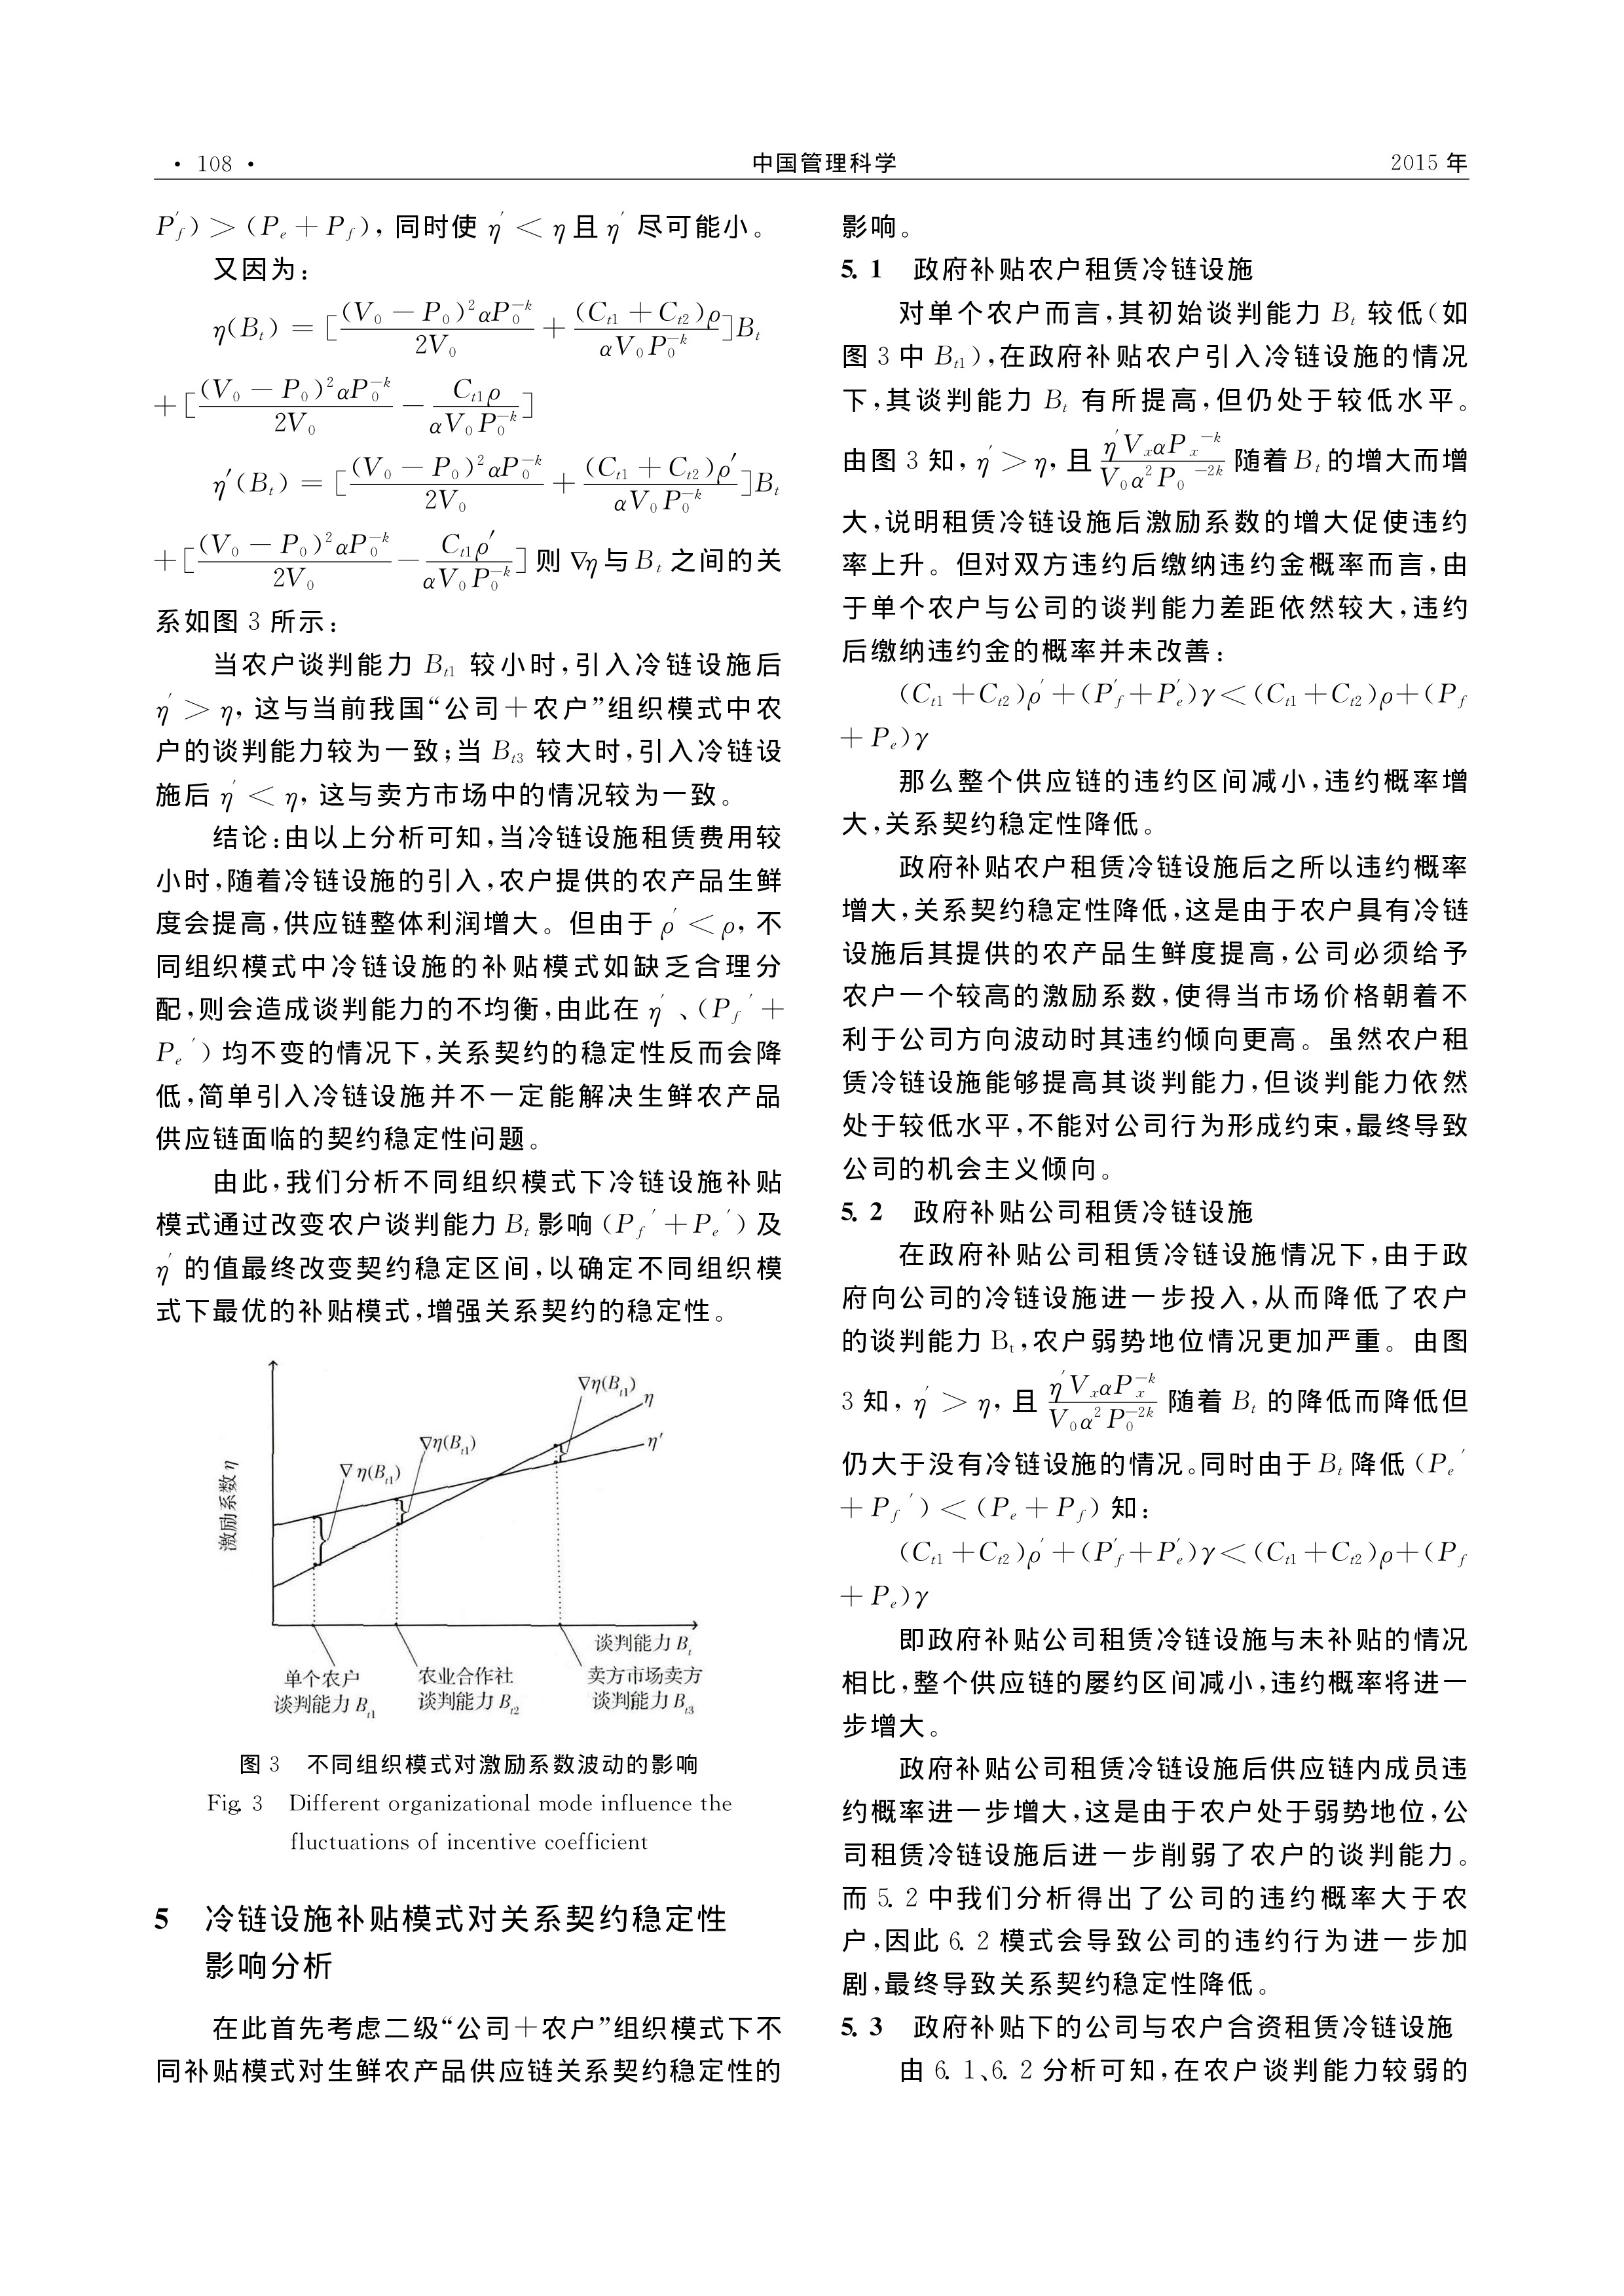 · 108 ·
中国管理科学
2015 年
P′f) > (Pe + Pf), 同时使 η′ < η 且 η′ 尽可能小。
又因为:
η(Bt) = [(V0 − P0)²αP0^−k / 2V0 + (Ct1 + Ct2)ρ / αV0P0^−k]Bt
+ [(V0 − P0)²αP0^−k / 2V0 − Ct1ρ / αV0P0^−k]
η′(Bt) = [(V0 − P0)²αP0^−k / 2V0 + (Ct1 + Ct2)ρ′ / αV0P0^−k]Bt
+ [(V0 − P0)²αP0^−k / 2V0 − Ct1ρ′ / αV0P0^−k] 则 ∇η 与 Bt 之间的关
系如图 3 所示:
当农户谈判能力 Bt1 较小时,引入冷链设施后
η′ > η, 这与当前我国“公司+农户”组织模式中农
户的谈判能力较为一致;当 Bt3 较大时,引入冷链设
施后 η′ < η, 这与卖方市场中的情况较为一致。
结论:由以上分析可知,当冷链设施租赁费用较
小时,随着冷链设施的引入,农户提供的农产品生鲜
度会提高,供应链整体利润增大。但由于 ρ′ < ρ, 不
同组织模式中冷链设施的补贴模式如缺乏合理分
配,则会造成谈判能力的不均衡,由此在 η′ 、(Pf′ +
Pe′) 均不变的情况下,关系契约的稳定性反而会降
低,简单引入冷链设施并不一定能解决生鲜农产品
供应链面临的契约稳定性问题。
由此,我们分析不同组织模式下冷链设施补贴
模式通过改变农户谈判能力 Bt 影响 (Pf′ + Pe′) 及
η′ 的值最终改变契约稳定区间,以确定不同组织模
式下最优的补贴模式,增强关系契约的稳定性。
∇η(Bt1)
η
∇η(Bt1)
η′
∇η(Bt1)
激励系数 η
谈判能力 Bt
单个农户
谈判能力 Bt1
农业合作社
谈判能力 Bt2
卖方市场卖方
谈判能力 Bt3
图 3 不同组织模式对激励系数波动的影响
Fig. 3 Different organizational mode influence the
fluctuations of incentive coefficient
5 冷链设施补贴模式对关系契约稳定性
影响分析
在此首先考虑二级“公司+农户”组织模式下不
同补贴模式对生鲜农产品供应链关系契约稳定性的
影响。
5. 1 政府补贴农户租赁冷链设施
对单个农户而言,其初始谈判能力 Bt 较低(如
图 3 中 Bt1),在政府补贴农户引入冷链设施的情况
下,其谈判能力 Bt 有所提高,但仍处于较低水平。
由图 3 知, η′ > η, 且 η′VxαPx^−k / V0α²P0^−2k 随着 Bt 的增大而增
大,说明租赁冷链设施后激励系数的增大促使违约
率上升。但对双方违约后缴纳违约金概率而言,由
于单个农户与公司的谈判能力差距依然较大,违约
后缴纳违约金的概率并未改善:
(Ct1 + Ct2)ρ′ + (P′f + P′e)γ < (Ct1 + Ct2)ρ + (Pf
+ Pe)γ
那么整个供应链的违约区间减小,违约概率增
大,关系契约稳定性降低。
政府补贴农户租赁冷链设施后之所以违约概率
增大,关系契约稳定性降低,这是由于农户具有冷链
设施后其提供的农产品生鲜度提高,公司必须给予
农户一个较高的激励系数,使得当市场价格朝着不
利于公司方向波动时其违约倾向更高。虽然农户租
赁冷链设施能够提高其谈判能力,但谈判能力依然
处于较低水平,不能对公司行为形成约束,最终导致
公司的机会主义倾向。
5. 2 政府补贴公司租赁冷链设施
在政府补贴公司租赁冷链设施情况下,由于政
府向公司的冷链设施进一步投入,从而降低了农户
的谈判能力 Bt,农户弱势地位情况更加严重。由图
3 知, η′ > η, 且 η′VxαPx^−k / V0α²P0^−2k 随着 Bt 的降低而降低但
仍大于没有冷链设施的情况。同时由于 Bt 降低 (Pe′
+ Pf′) < (Pe + Pf) 知:
(Ct1 + Ct2)ρ′ + (P′f + P′e)γ < (Ct1 + Ct2)ρ + (Pf
+ Pe)γ
即政府补贴公司租赁冷链设施与未补贴的情况
相比,整个供应链的屡约区间减小,违约概率将进一
步增大。
政府补贴公司租赁冷链设施后供应链内成员违
约概率进一步增大,这是由于农户处于弱势地位,公
司租赁冷链设施后进一步削弱了农户的谈判能力。
而 5. 2 中我们分析得出了公司的违约概率大于农
户,因此 6. 2 模式会导致公司的违约行为进一步加
剧,最终导致关系契约稳定性降低。
5. 3 政府补贴下的公司与农户合资租赁冷链设施
由 6. 1、6. 2 分析可知,在农户谈判能力较弱的